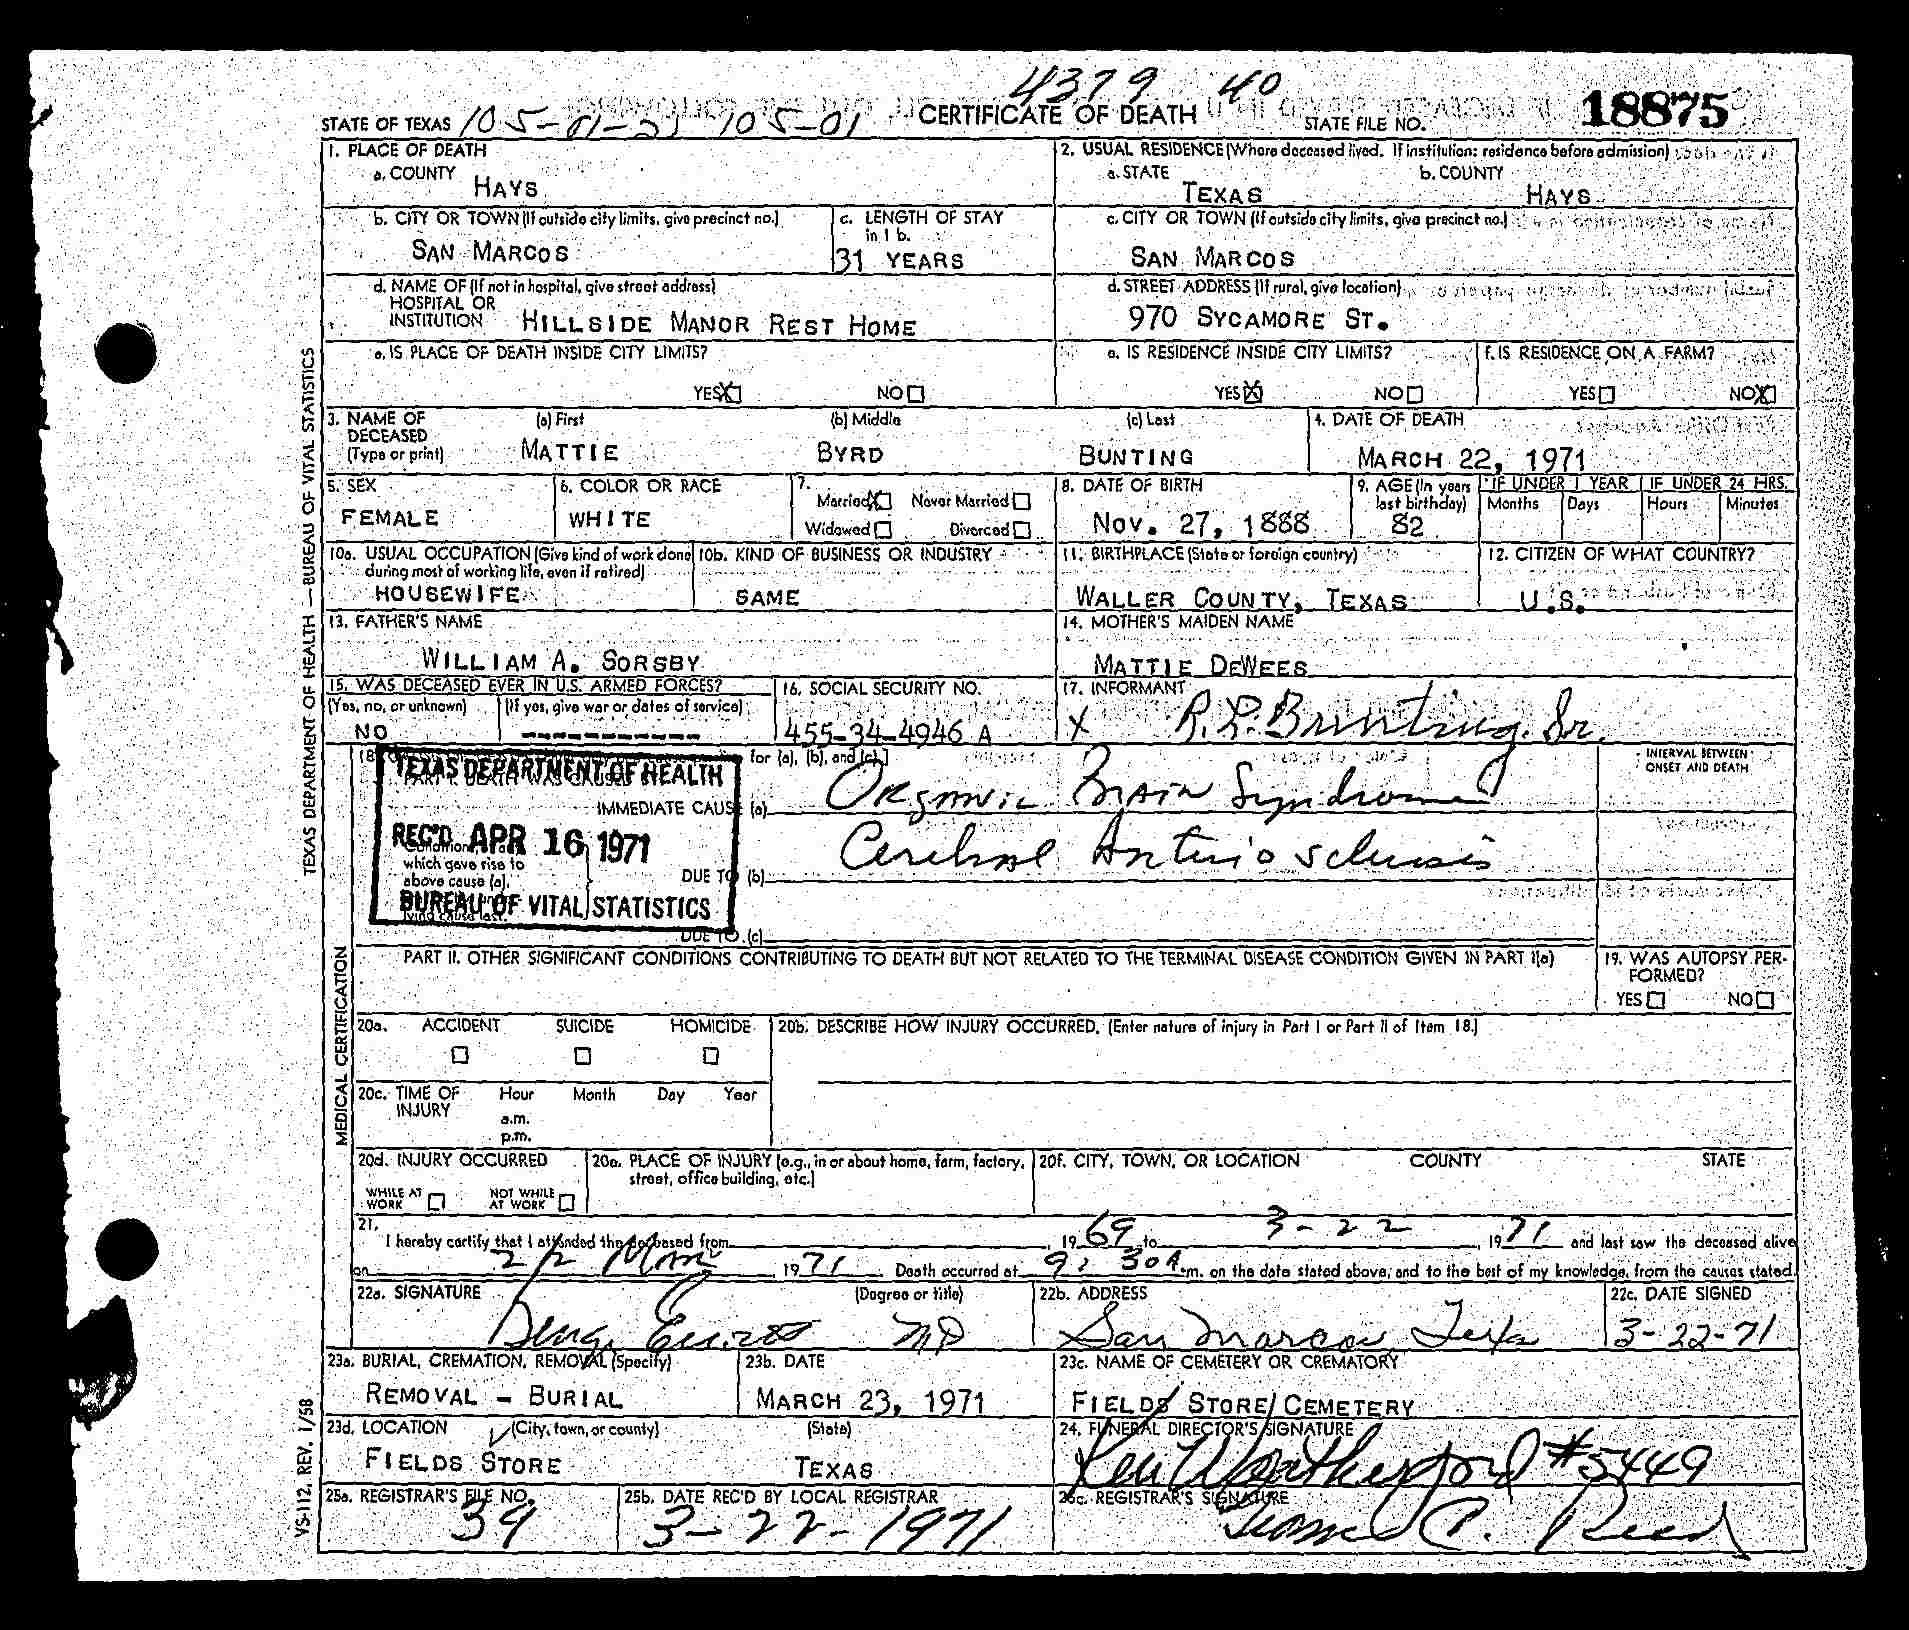 4379 40
STATE OF TEXAS 105-01-21 105-01 CERTIFICATE OF DEATH STATE FILE NO. 18875
1. PLACE OF DEATH
a. COUNTY HAYS
2. USUAL RESIDENCE (Where deceased lived. If institution: residence before admission)
a. STATE TEXAS b. COUNTY HAYS
b. CITY OR TOWN (If outside city limits, give precinct no.) SAN MARCOS
c. LENGTH OF STAY in 1 b. 31 YEARS
c. CITY OR TOWN (If outside city limits, give precinct no.) SAN MARCOS
d. NAME OF (If not in hospital, give street address)
HOSPITAL OR
INSTITUTION HILLSIDE MANOR REST HOME
d. STREET ADDRESS (If rural, give location)
970 SYCAMORE ST.
e. IS PLACE OF DEATH INSIDE CITY LIMITS?
YES X NO
e. IS RESIDENCE INSIDE CITY LIMITS?
YES X NO
f. IS RESIDENCE ON A FARM?
YES NO X
3. NAME OF DECEASED (Type or print)
(a) First MATTIE (b) Middle BYRD (c) Last BUNTING
4. DATE OF DEATH
MARCH 22, 1971
5. SEX
FEMALE
6. COLOR OR RACE
WHITE
7. Married X Never Married
Widowed Divorced
8. DATE OF BIRTH
NOV. 27, 1888
9. AGE (In years last birthday)
82
IF UNDER 1 YEAR Months Days
IF UNDER 24 HRS. Hours Minutes
10a. USUAL OCCUPATION (Give kind of work done during most of working life, even if retired)
HOUSEWIFE
10b. KIND OF BUSINESS OR INDUSTRY
SAME
11. BIRTHPLACE (State or foreign country)
WALLER COUNTY, TEXAS
12. CITIZEN OF WHAT COUNTRY?
U.S.
13. FATHER'S NAME
WILLIAM A. SORSBY
14. MOTHER'S MAIDEN NAME
MATTIE DEWEES
15. WAS DECEASED EVER IN U.S. ARMED FORCES?
(Yes, no, or unknown) (If yes, give war or dates of service)
NO -----------
16. SOCIAL SECURITY NO.
455-34-4946 A
17. INFORMANT
X R. L. Bunting, Sr.
18. for (a), (b), and (c).]
PART I. DEATH WAS CAUSED
IMMEDIATE CAUSE (a) Organic Brain Syndrome
INTERVAL BETWEEN ONSET AND DEATH
which gave rise to
above cause (a),
lying cause last.
DUE TO (b) Cerebral Arteriosclerosis
DUE TO (c)
TEXAS DEPARTMENT OF HEALTH
REC'D APR 16 1971
BUREAU OF VITAL STATISTICS
PART II. OTHER SIGNIFICANT CONDITIONS CONTRIBUTING TO DEATH BUT NOT RELATED TO THE TERMINAL DISEASE CONDITION GIVEN IN PART I(a)
19. WAS AUTOPSY PERFORMED?
YES NO
20a. ACCIDENT SUICIDE HOMICIDE
20b. DESCRIBE HOW INJURY OCCURRED. (Enter nature of injury in Part I or Part II of Item 18.)
20c. TIME OF INJURY Hour Month Day Year
a.m.
p.m.
20d. INJURY OCCURRED
WHILE AT WORK NOT WHILE AT WORK
20e. PLACE OF INJURY (e.g., in or about home, farm, factory, street, office building, etc.)
20f. CITY, TOWN, OR LOCATION COUNTY STATE
21. I hereby certify that I attended the deceased from 1969 to 3-22 1971 and last saw the deceased alive
on 1971. Death occurred at 9:30 A.m. on the date stated above, and to the best of my knowledge, from the causes stated.
22a. SIGNATURE (Degree or title)
MD
22b. ADDRESS
San Marcos, Texas
22c. DATE SIGNED
3-22-71
23a. BURIAL, CREMATION, REMOVAL (Specify)
REMOVAL - BURIAL
23b. DATE
MARCH 23, 1971
23c. NAME OF CEMETERY OR CREMATORY
FIELDS STORE CEMETERY
23d. LOCATION (City, town, or county) (State)
FIELDS STORE TEXAS
24. FUNERAL DIRECTOR'S SIGNATURE
Ken Weatherford #5449
25a. REGISTRAR'S FILE NO.
39
25b. DATE REC'D BY LOCAL REGISTRAR
3-22-1971
25c. REGISTRAR'S SIGNATURE
C. Reed
TEXAS DEPARTMENT OF HEALTH — BUREAU OF VITAL STATISTICS
MEDICAL CERTIFICATION
VS-112, REV. 1/58